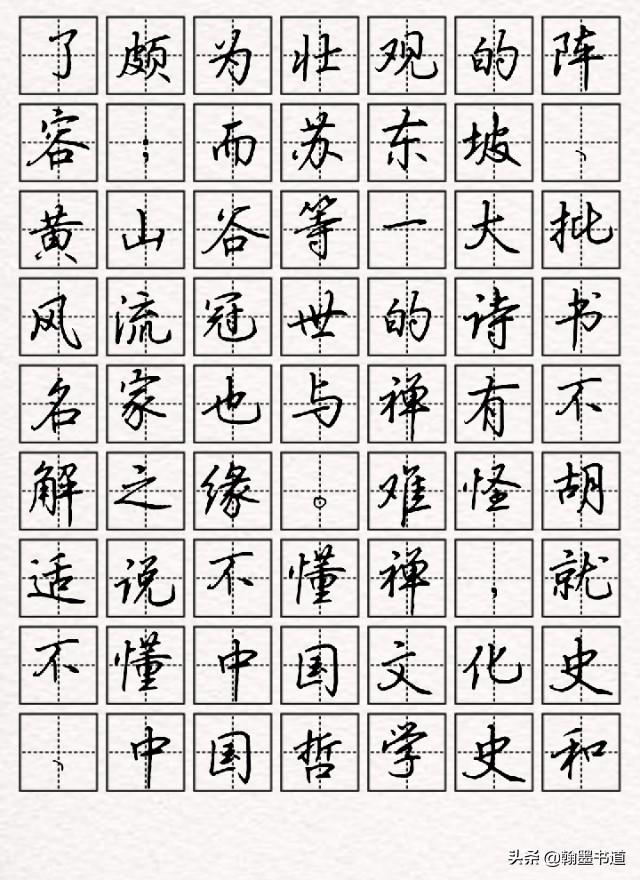 了颇为壮观的阵
容；而苏东坡、
黄山谷等一大批
风流冠世的诗书
名家也与禅有不
解之缘。难怪胡
适说不懂禅，就
不懂中国文化史
、中国哲学史和
头条 @翰墨书道